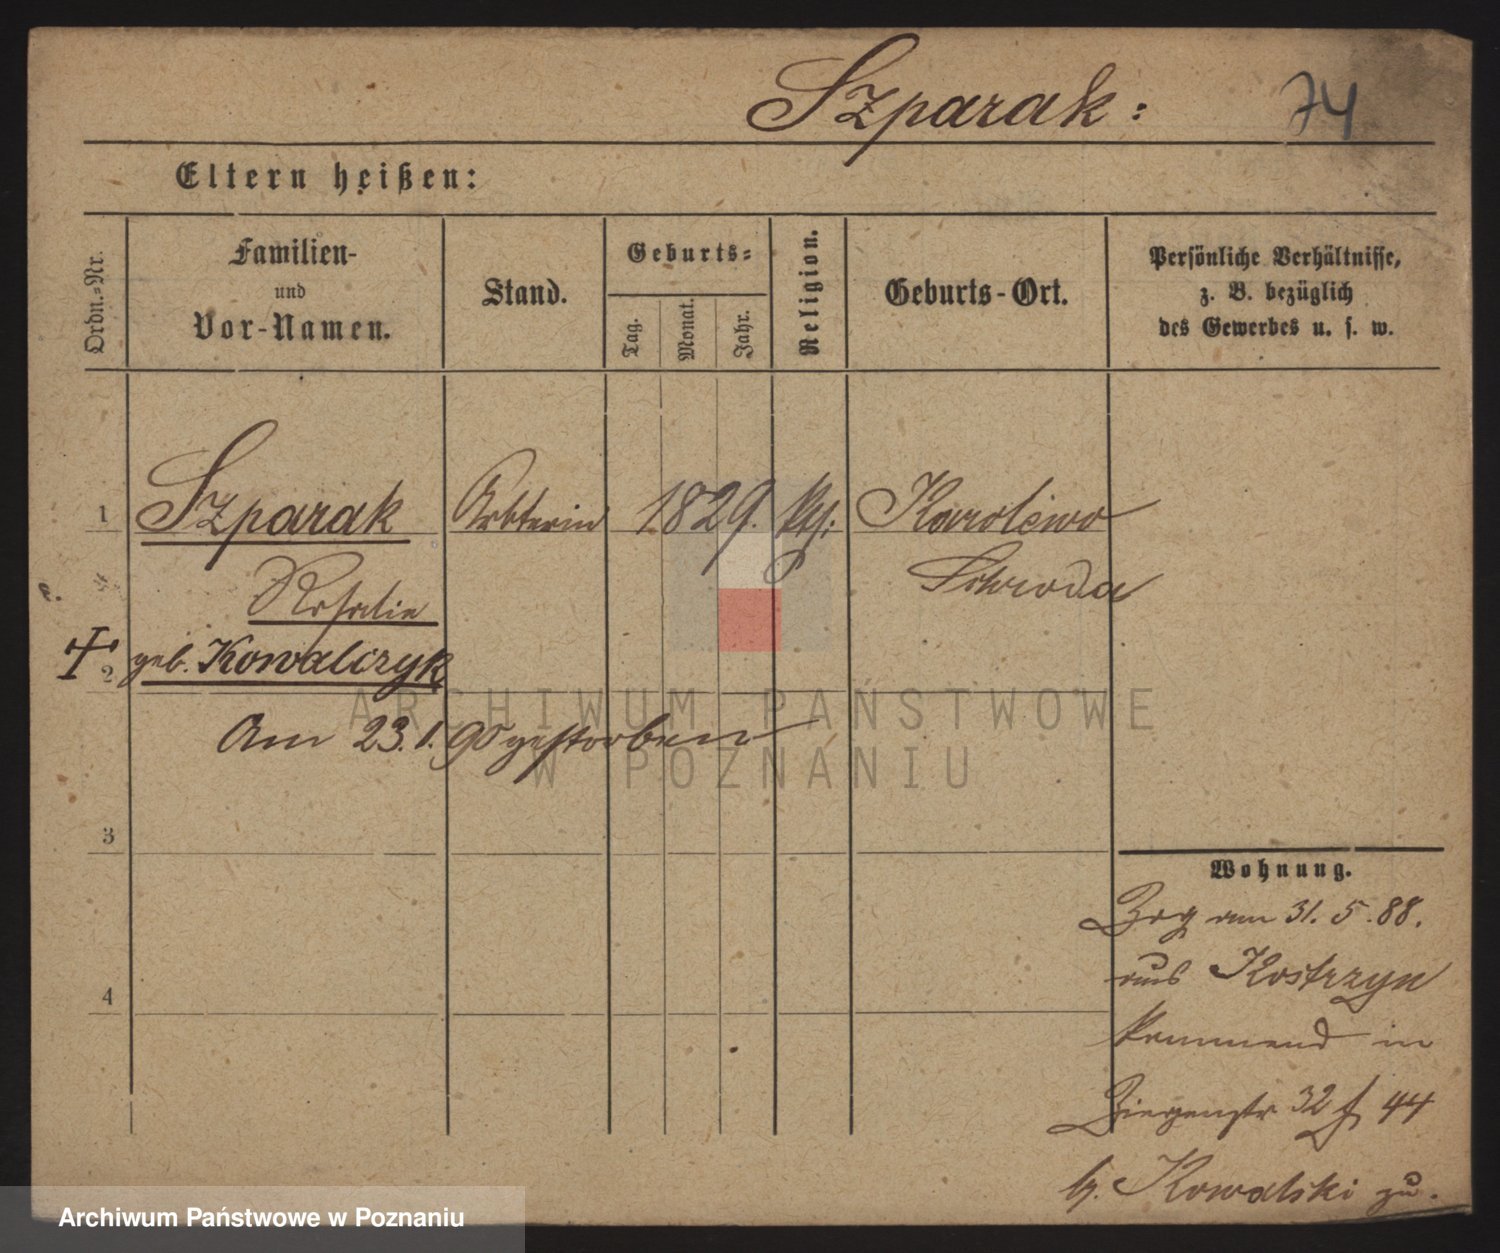 Szparak:
74
Eltern heißen:
Ordn.-Nr.
Familien-
und
Vor-Namen.
Stand.
Geburts=
Tag.
Monat.
Jahr.
Religion.
Geburts-Ort.
Persönliche Verhältnisse,
z. B. bezüglich
des Gewerbes u. s. w.
1
Szparak Arbterin 1829. kth: Karolewo
Rosalie Schroda
2
geb. Kowalczyk
Am 23.1.90 gestorben
ARCHIWUM PAŃSTWOWE
W POZNANIU
3
4
Wohnung.
Zog am 31.5.88.
aus Kostrzyn
kommend in
Ziegenstr 32 44
b. Kowalski zu.
Archiwum Państwowe w Poznaniu